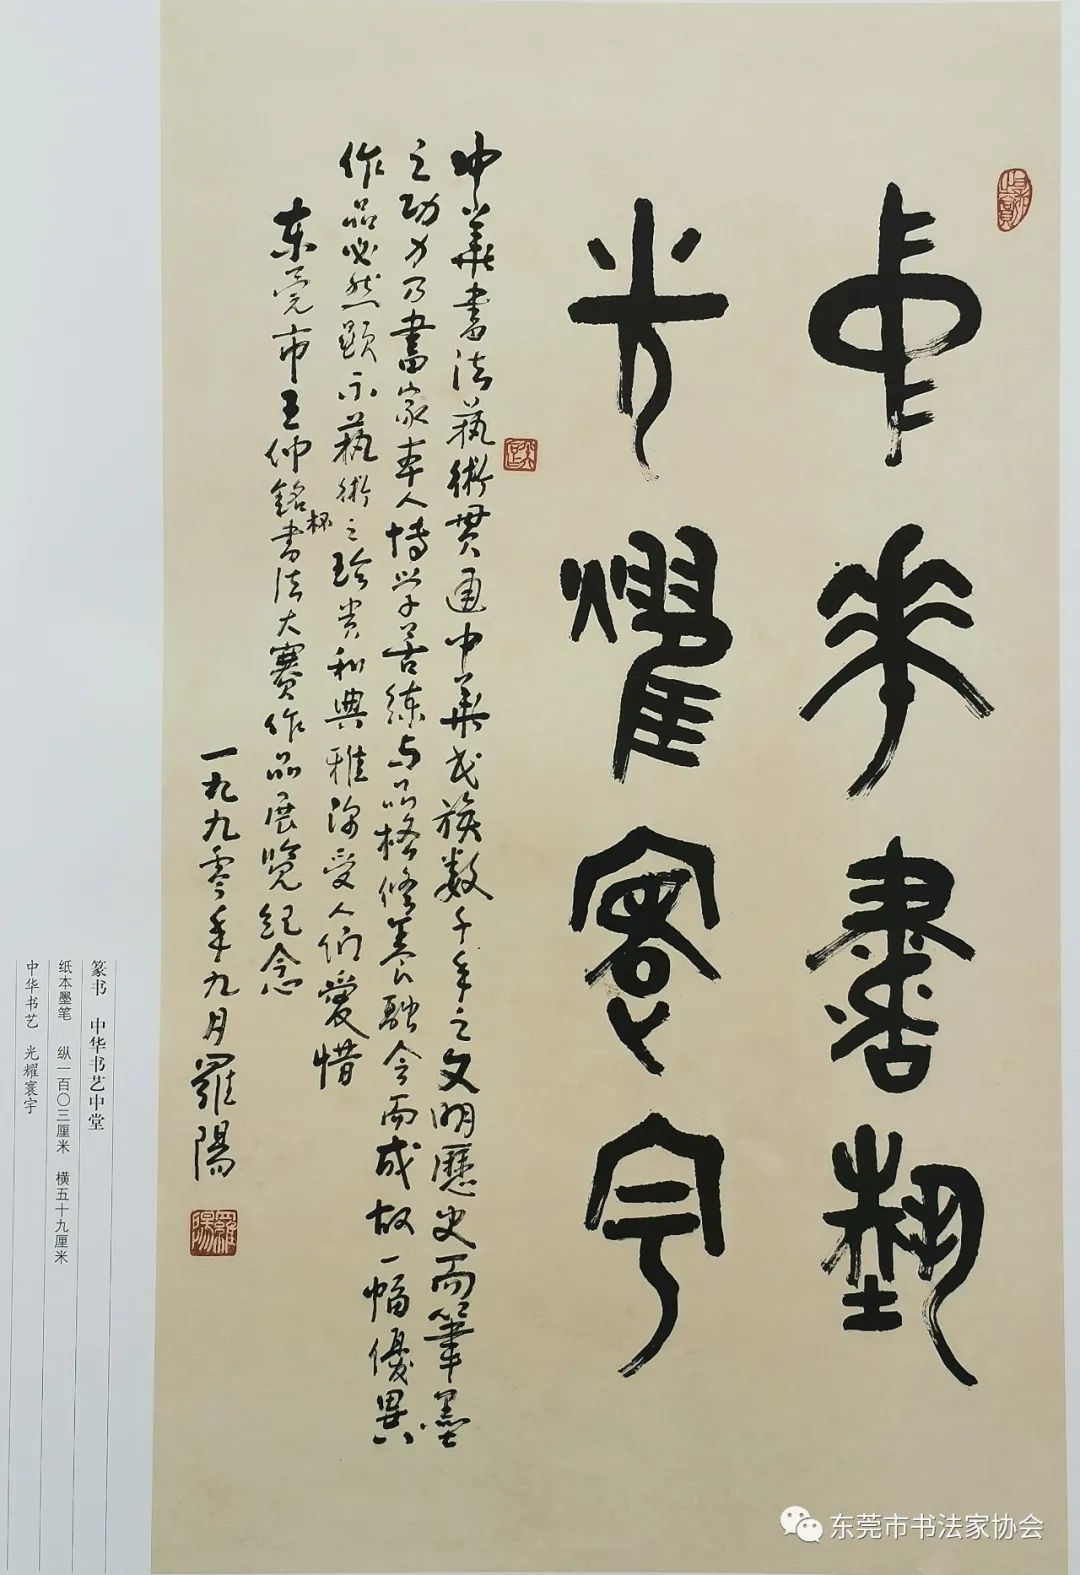 中华书艺
光耀寰宇
中华書法藝術贯通中华民族数千年之文明歷史而筆墨
之功力乃書家本人博学苦练与品格修养融会而成故一幅優異
作品必然显示藝術之珍贵和典雅深受人们愛惜
东莞市王仲銘杯書法大赛作品展览纪念
一九九零年九月羅陽
羅陽
篆书 中华书艺中堂
纸本墨笔 纵一百〇三厘米 横五十九厘米
中华书艺 光耀寰宇
东莞市书法家协会